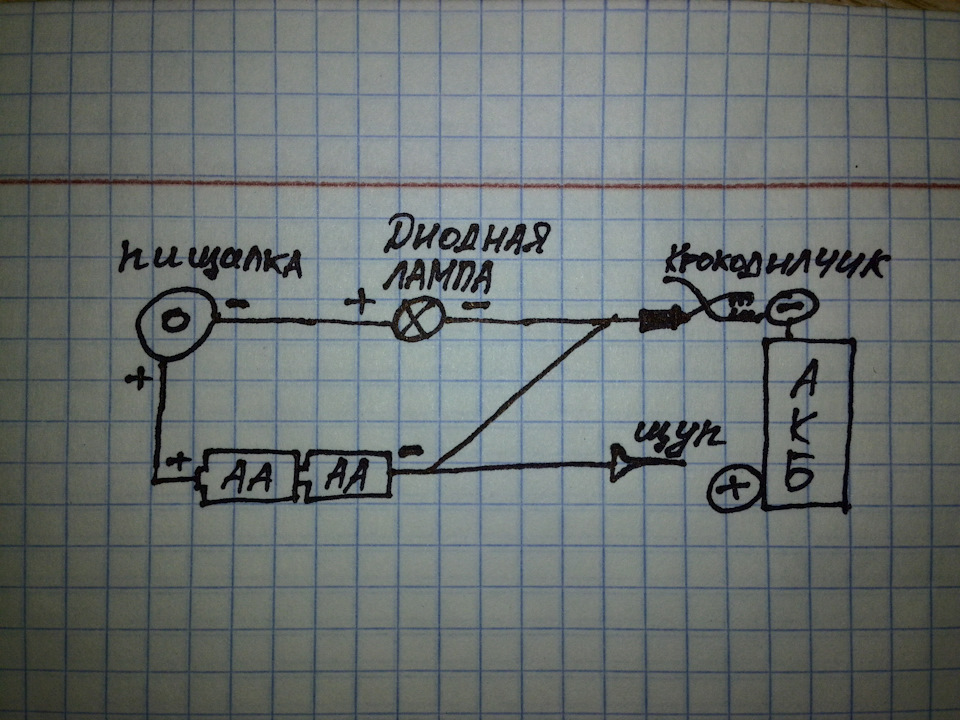 пищалка
Диодная
лампа
крокодильчик
+
-
+
-
-
+
+
АА
АА
-
щуп
+
А
К
Б